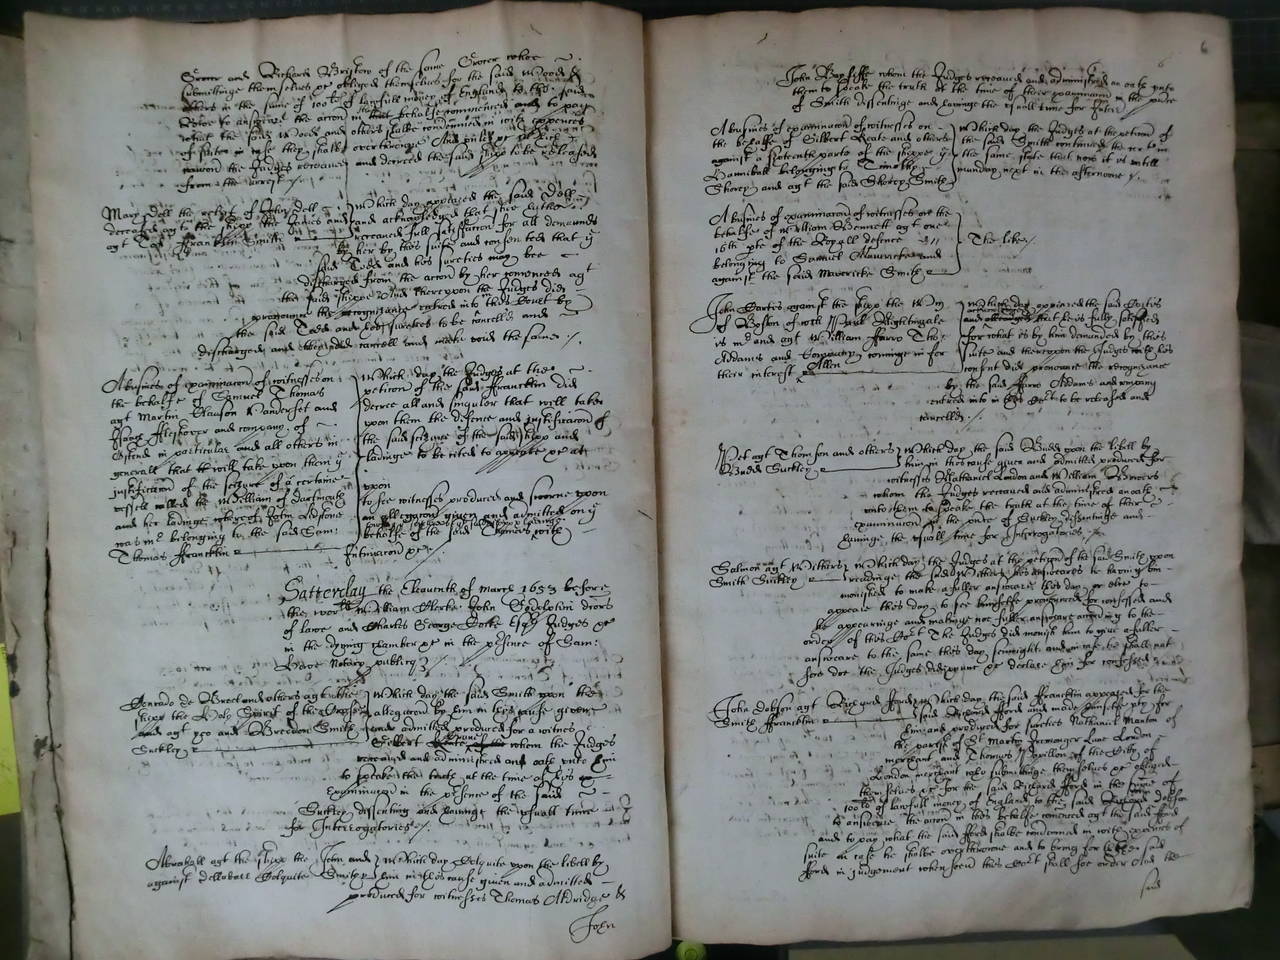 Grocer and Richard Bristow of the same Grocer whoe
submittinge themselves &c obliged themselves for the said Wood &
others in the summe of 100li of lawfull money of England to the said
to answere the accon in that behalfe commenced and to pay
what the said Wood and others shalbe condemned in with expences
of suite in case they shalbe overthrowne And
the Judges received and decreed the said shipp to be released
from the arrest
Mary Doll the relict of John Doll
deceased agt the shipp the and
agt Tedd Francklin Smith
Which day appeared the said Doll
and acknowledged that shee hathe
received full satisfaction for all demaunds
by her in this suite and consented that ye
said Tedd and his suerties may bee
discharged from the accon by her comenced agt
the said shippe And thereupon the Judges did
pronounce the recognizance entred into in this Court by
the said Tedd and his suerties to be cancelled and
discharged and decreed cancell and make void the same
A busines of examinacon of witnesses on
the behalfe of Samuel Thomas
agt Martin Clauson and
and company of
Ostend in particular and all others in
generall that will take upon them ye
justificacon of the seizure of a certaine
vessell called the William of Dartmouth
and her ladinge whereof John
was mr belonging to the said Sam:
Thomas Francklin
Which day the Judges at the
peticon of the said Francklin did
decree all and singular that will take
upon them the defence and justificacon of
the said seizure of the said shipp and
ladinge to be cited to appeare &c at
upon
to see witnesses produced and sworne upon
an allegacon given and admitted on ye
behalfe of the said Thomas with
Intimacon &c
Satterday the Eleaventh of March 1653 before
the worll William Clerke John Godolphin drors
of lawe and Charles George Cocke Esqr Judges &c
in the dyning chamber &c in the presence of Sam:
Howe Notary publique
Conrado de Brecl and others agt the
shipp the Holy Spirit of the
and agt and Breedon Smith
Suckley
Which day the said Smith upon the
allegacon by him in this cause given
and admitted produced for a witnes
Gilbert whom the Judges
received and administred an oath unto him
to speake the truth at the time of his
examinacon in the presence of the said
Suckley dissenting and saving the usuall time
for Interrogatories
Abrahall agt the shipp the John and
against Dellabarr Colquite Smith
Which day Colquite upon the libell by
him in this cause given and admitted
produced for witnesses Thomas Aldridge &
John
6
John whom the Judges received and administred an oath unto
them to speake the truth at the time of their examinacon in the pnce
of Smith dissenting and saving the usuall time for Interr
A busines of examinacon of witnesses on
the behalfe of Gilbert and others
against a sixteenth parte of the shippe ye
Hanniball belonging to Timothy
Shorey and agt the said Shorey Smith
Which day the Judges at the peticon of
the said Smith continued the certe in
the same state that now it is untill
munday next in the afternoone
A busines of examinacon of witnesses on the
behalfe of William Bennett agt one
16th pte of the Royall defence
belonging to Samuel Mavericke and
against the said Mavericke Smith
The like
John Cortis against the shipp the
of Boston of wch Paul Nightingale
is mr and agt William Farro Tho:
Addams and Company coming in for
their interest Allen
Which day appeared the said Cortis
and alleaged that hee is fully satisfied
for what is by him demanded by this
suite and thereupon the Judges with his
consent did pronounce the recognizance
by the said Farro Addams and company
entred into in this Court to be released and
cancelled
agt Thomson and others
Budd Suckley
Which day the said Budd upon the libell by
him in this cause given and admitted produced for
witnesses Nathaniel London and William
whom the Judges received and administred an oath
unto them to speake the truth at the time of their
examinacon in the pnce of Suckley dissentinge and
saving the usuall time for Interrogatories
Salmon agt Withers
Smith Suckley
Which day the Judges at the peticon of the said Smith upon
readinge the said Withers his answeares he having bin
monished to make a fuller answeare this day or else to
appeare this day to see himselfe pronounced for confessed and
he appearinge and makinge noe fuller answeare according to the
order of this Court The Judges did monish him to give a fuller
answeare to the same this day senight and in case he shall not
soe doe the Judges did pnounce or declare him for confessed
John Dobson agt Richard Fford
Smith Francklin
Which day the said Francklin appeared for the
said Richard Fford and made himselfe pty for
him and produced for suerties Nathaniel Manton of
the parish of St Martin Iremonger Lane London
merchant and Thomas Papillon of the Citty of
London merchant who submitting themselves &c obliged
themselves &c for the said Richard Fford in the summe of
100li of lawfull money of England to the said Dobson
to answeare the accon in this behalfe comenced agt the said Fford
and to pay what the said Fford shalbe condemned in with expences of
suite in case he shalbe overthrowne and to bring forth the said
Fford in judgement when soever this Court shall soe order And the
said